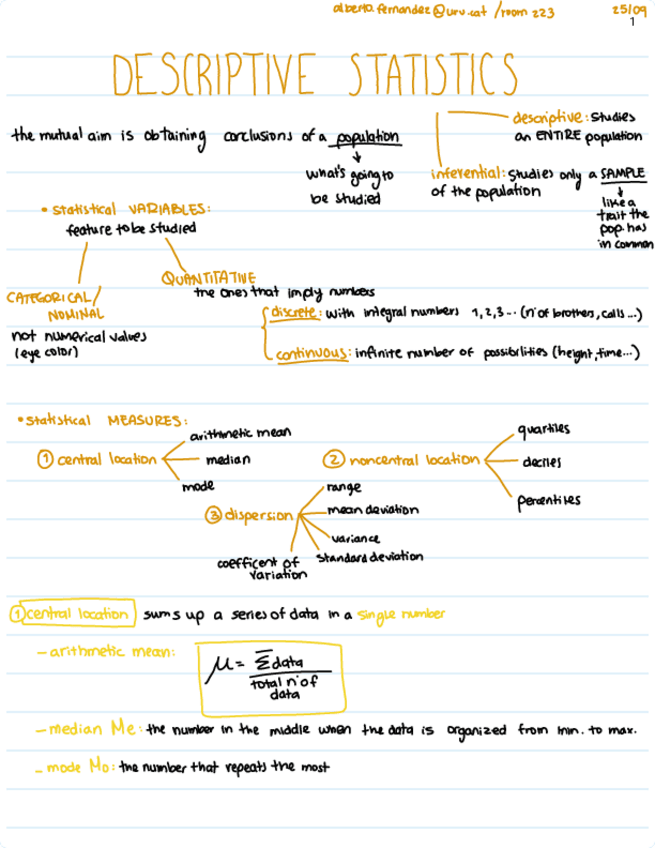 alberto.fernandez@urv.cat / room 223
25/09
1
DESCRIPTIVE STATISTICS
the mutual aim is obtaining conclusions of a population
what's going to
be studied
descriptive: studies
an ENTIRE population
inferential: studies only a SAMPLE
of the population
like a
trait the
pop. has
in common
• Statistical VARIABLES:
feature to be studied
CATEGORICAL/
NOMINAL
not numerical values
(eye color)
QUANTITATIVE
the ones that imply numbers
discrete: with integral numbers 1,2,3... (nº of brothers, calls...)
continuous: infinite number of possibilities (height, time...)
• Statistical MEASURES:
① central location
arithmetic mean
median
mode
② noncentral location
quartiles
deciles
percentiles
③ dispersion
range
mean deviation
variance
standard deviation
coefficent of
variation
① central location sums up a series of data in a single number
- arithmetic mean:
μ = Σdata
total nº of
data
- median Me: the number in the middle when the data is organized from min. to max.
- mode Mo: the number that repeats the most